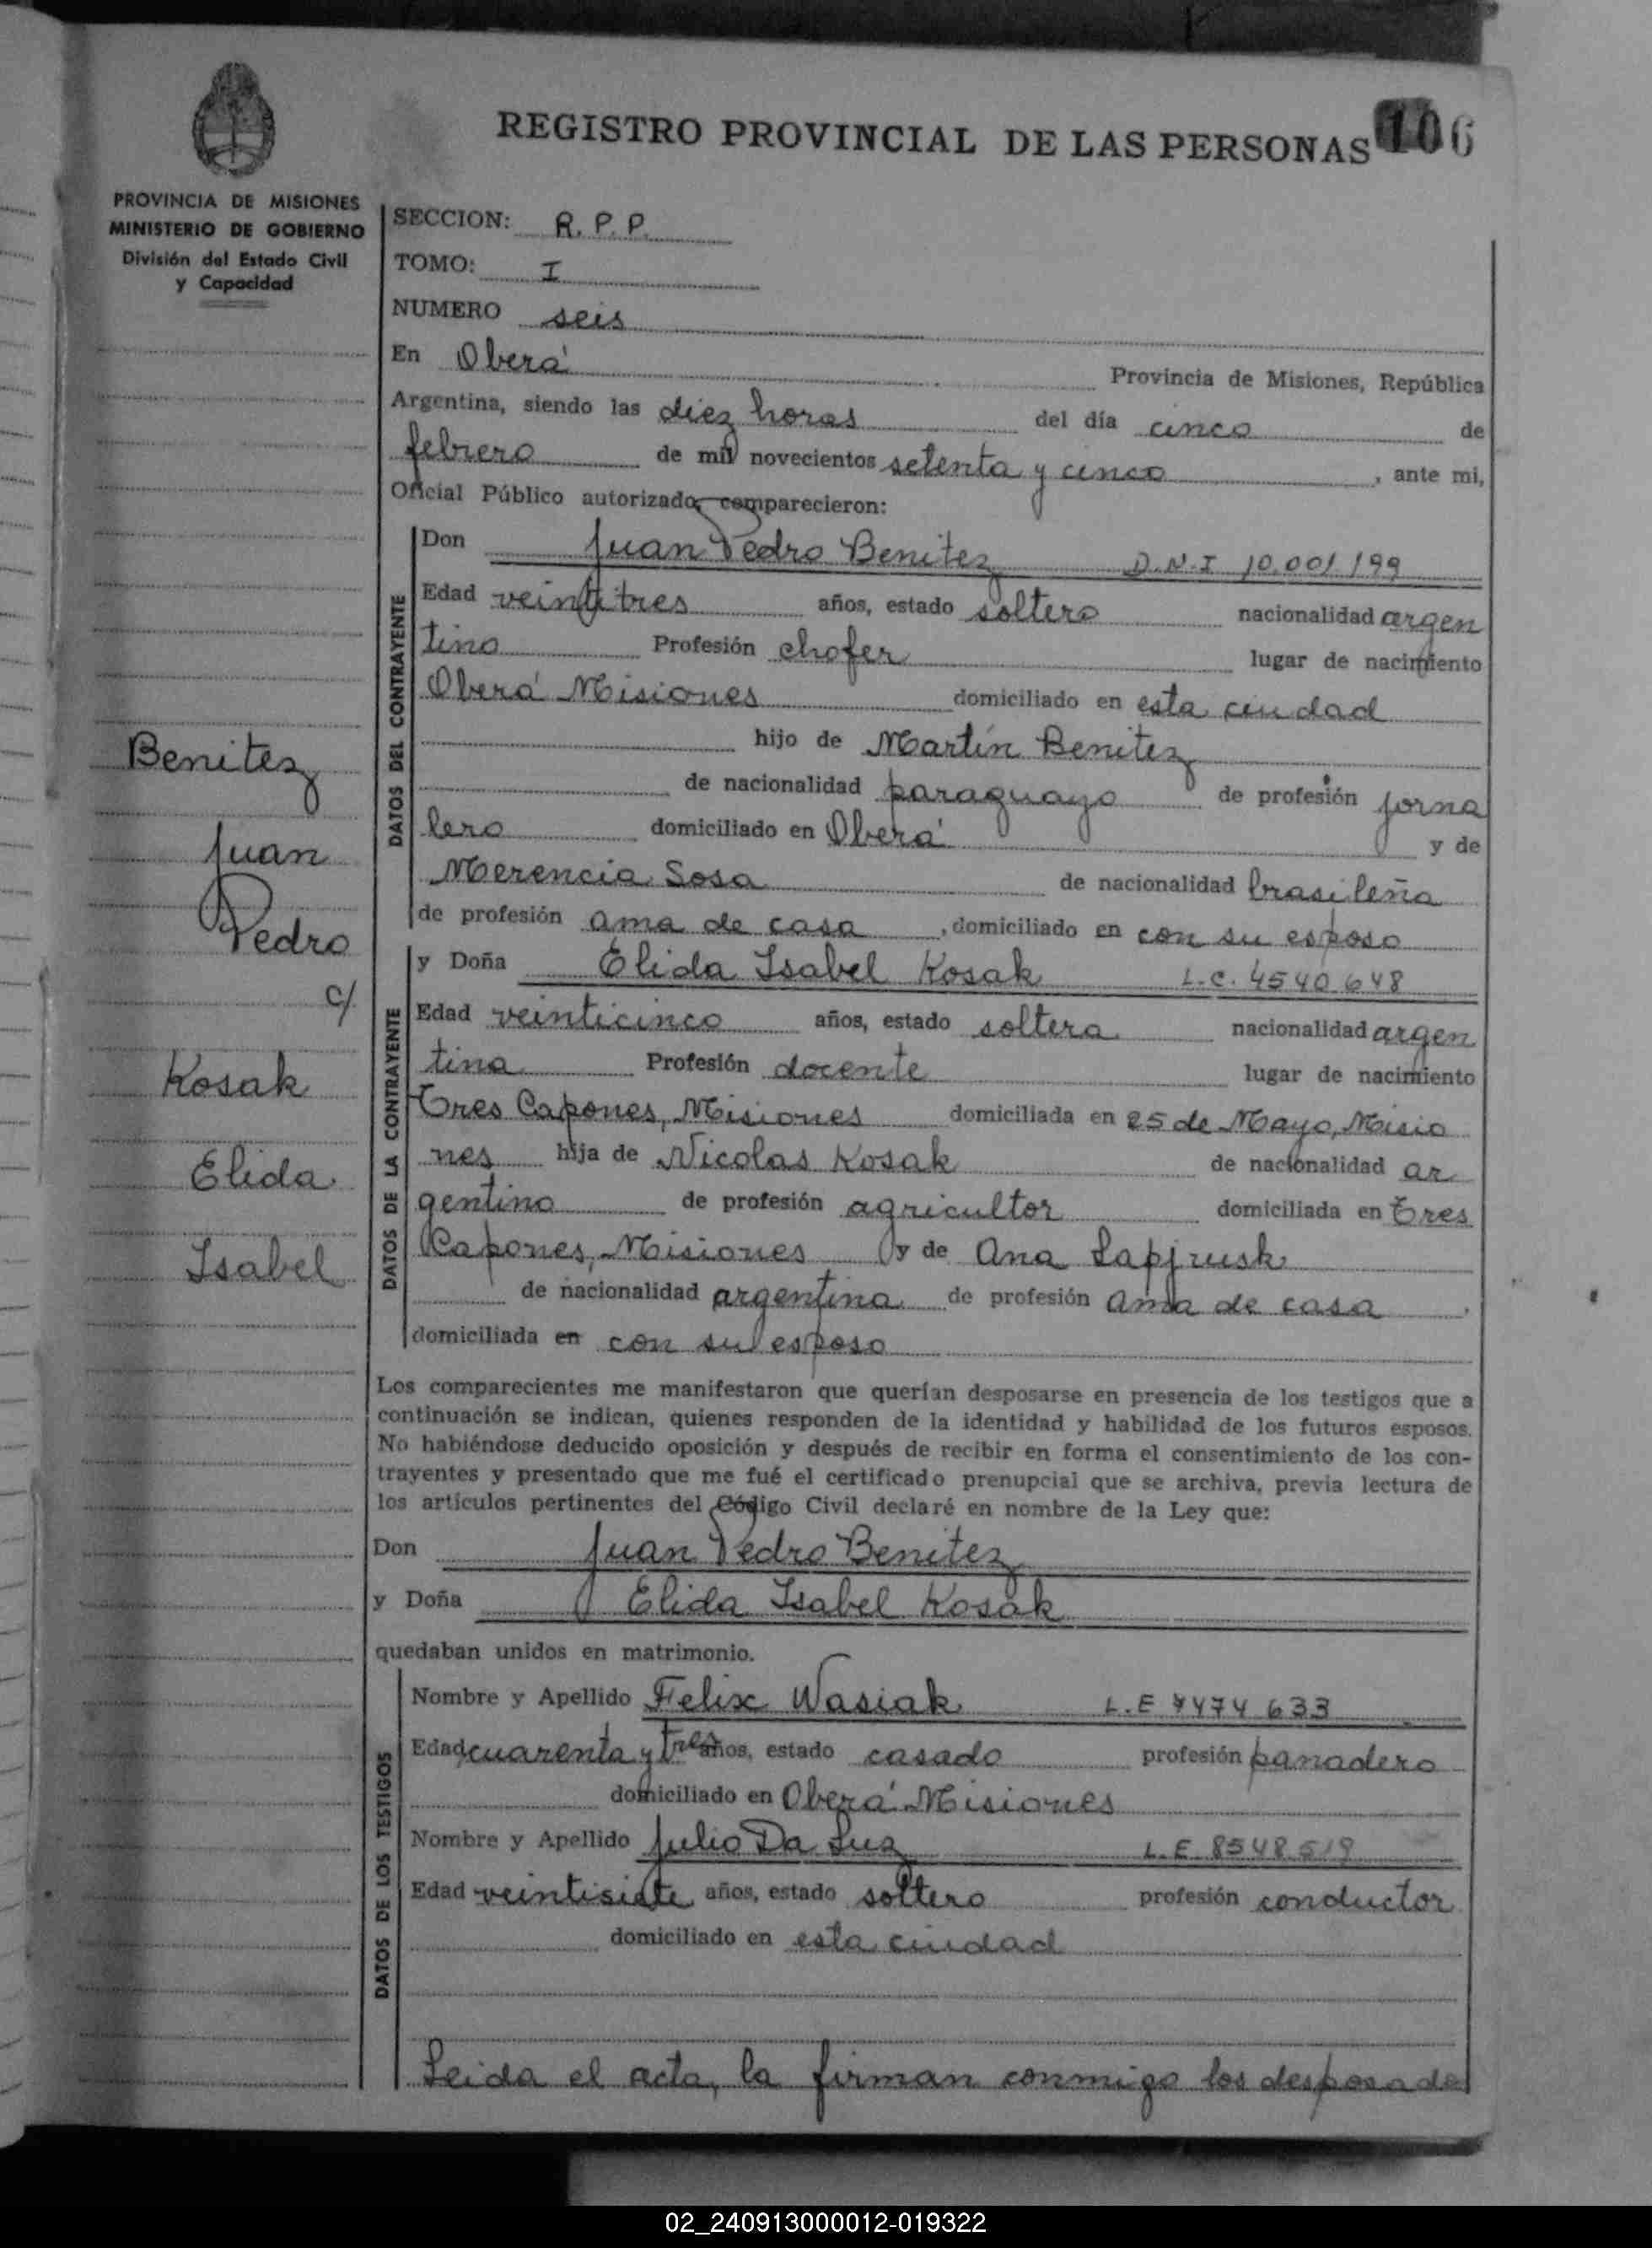 REGISTRO PROVINCIAL DE LAS PERSONAS 106
PROVINCIA DE MISIONES
MINISTERIO DE GOBIERNO
División del Estado Civil
y Capacidad
SECCION: R. P. P.
TOMO: I
NUMERO seis
En Oberá Provincia de Misiones, República
Argentina, siendo las diez horas del día cinco de
febrero de mil novecientos setenta y cinco, ante mi,
Oficial Público autorizado, comparecieron:
DATOS DEL CONTRAYENTE
Don Juan Pedro Benitez D.N.I 10.001.199
Edad veintitres años, estado soltero nacionalidad argen
tino Profesión chofer lugar de nacimiento
Oberá Misiones domiciliado en esta ciudad
hijo de Martín Benitez
de nacionalidad paraguayo de profesión jorna
lero domiciliado en Oberá y de
Merencia Sosa de nacionalidad brasileña
de profesión ama de casa, domiciliado en con su esposo
DATOS DE LA CONTRAYENTE
y Doña Elida Isabel Kosak L.C. 4540648
Edad veinticinco años, estado soltera nacionalidad argen
tina Profesión docente lugar de nacimiento
Tres Capones, Misiones domiciliada en 25 de Mayo, Misio
nes hija de Nicolas Kosak de nacionalidad ar
gentino de profesión agricultor domiciliada en Tres
Capones, Misiones y de Ana Sapjrusk
de nacionalidad argentina de profesión ama de casa,
domiciliada en con su esposo
Benitez
Juan
Pedro
c/
Kosak
Elida
Isabel
Los comparecientes me manifestaron que querían desposarse en presencia de los testigos que a
continuación se indican, quienes responden de la identidad y habilidad de los futuros esposos.
No habiéndose deducido oposición y después de recibir en forma el consentimiento de los con-
trayentes y presentado que me fué el certificado prenupcial que se archiva, previa lectura de
los artículos pertinentes del Código Civil declaré en nombre de la Ley que:
Don Juan Pedro Benitez
y Doña Elida Isabel Kosak
quedaban unidos en matrimonio.
DATOS DE LOS TESTIGOS
Nombre y Apellido Felix Wasiak L.E 7474 633
Edad cuarenta y tres años, estado casado profesión panadero
domiciliado en Oberá Misiones
Nombre y Apellido Julio Da Luz L.E 8548519
Edad veintisiete años, estado soltero profesión conductor
domiciliado en esta ciudad
Leida el acta, la firman conmigo los desposados
02_240913000012-019322